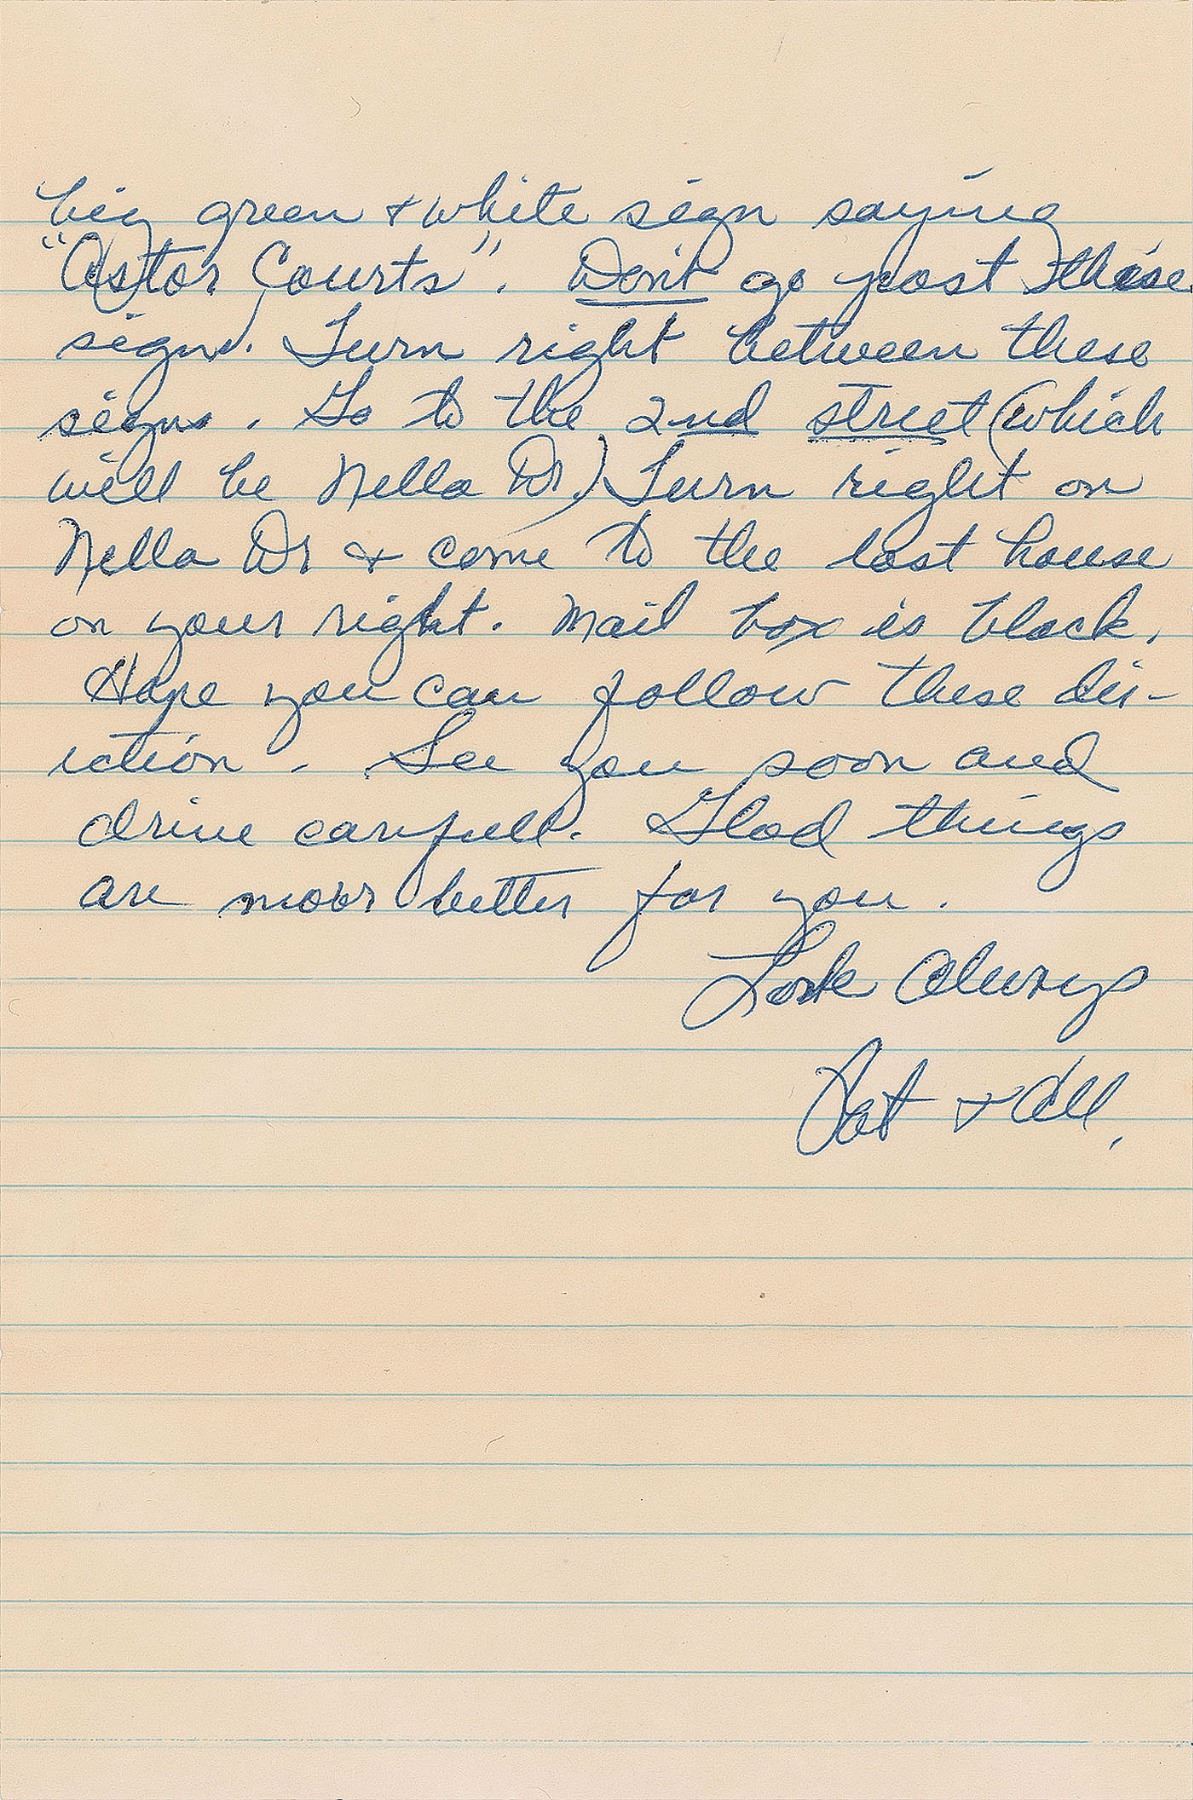 big green + white sign saying
"Astor Courts". Don't go past these
signs. Turn right between these
signs. Go to the 2nd street (which
will be Nella Dr.) Turn right on
Nella Dr + come to the last house
on your right. Mail box is black.
Hope you can follow these dir-
ection. See you soon and
drive carefull. Glad things
are better for you.
Always
Pat + All.